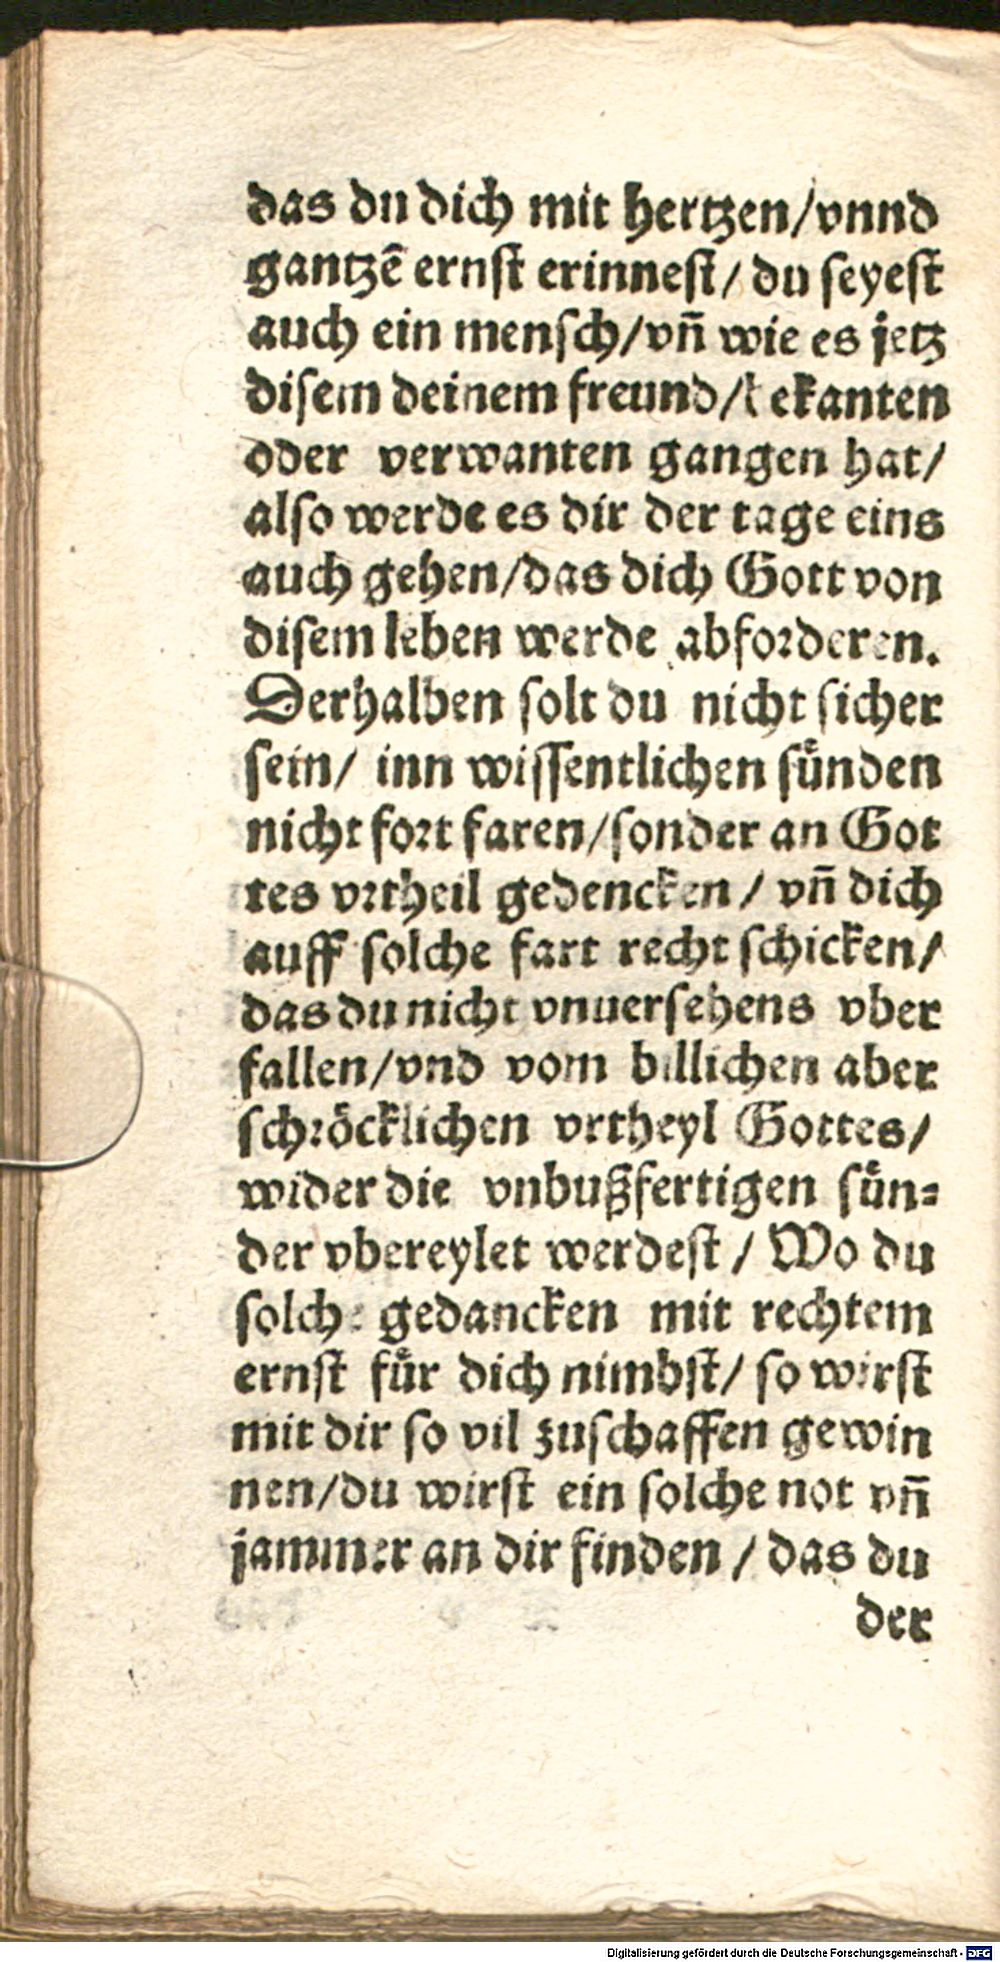 das du dich mit hertzen/vnnd
gantzē ernst erinnest/ du seyest
auch ein mensch/vn̄ wie es jetz
disem deinem freund/bekanten
oder verwanten gangen hat/
also werde es dir der tage eins
auch gehen/das dich Gott von
disem leben werde abforderen.
Derhalben solt du nicht sicher
sein/ inn wissentlichen sünden
nicht fort faren/sonder an Got
tes vrtheil gedencken / vn̄ dich
auff solche fart recht schicken/
das du nicht vnuersehens vber
fallen/vnd vom billichen aber
schröcklichen vrtheyl Gottes/
wider die vnbußfertigen sün⸗
der vbereylet werdest / Wo du
solche gedancken mit rechtem
ernst für dich nimbst/ so wirst
mit dir so vil zuschaffen gewin
nen/du wirst ein solche not vn̄
jammer an dir finden / das du
der
Digitalisierung gefördert durch die Deutsche Forschungsgemeinschaft - DFG